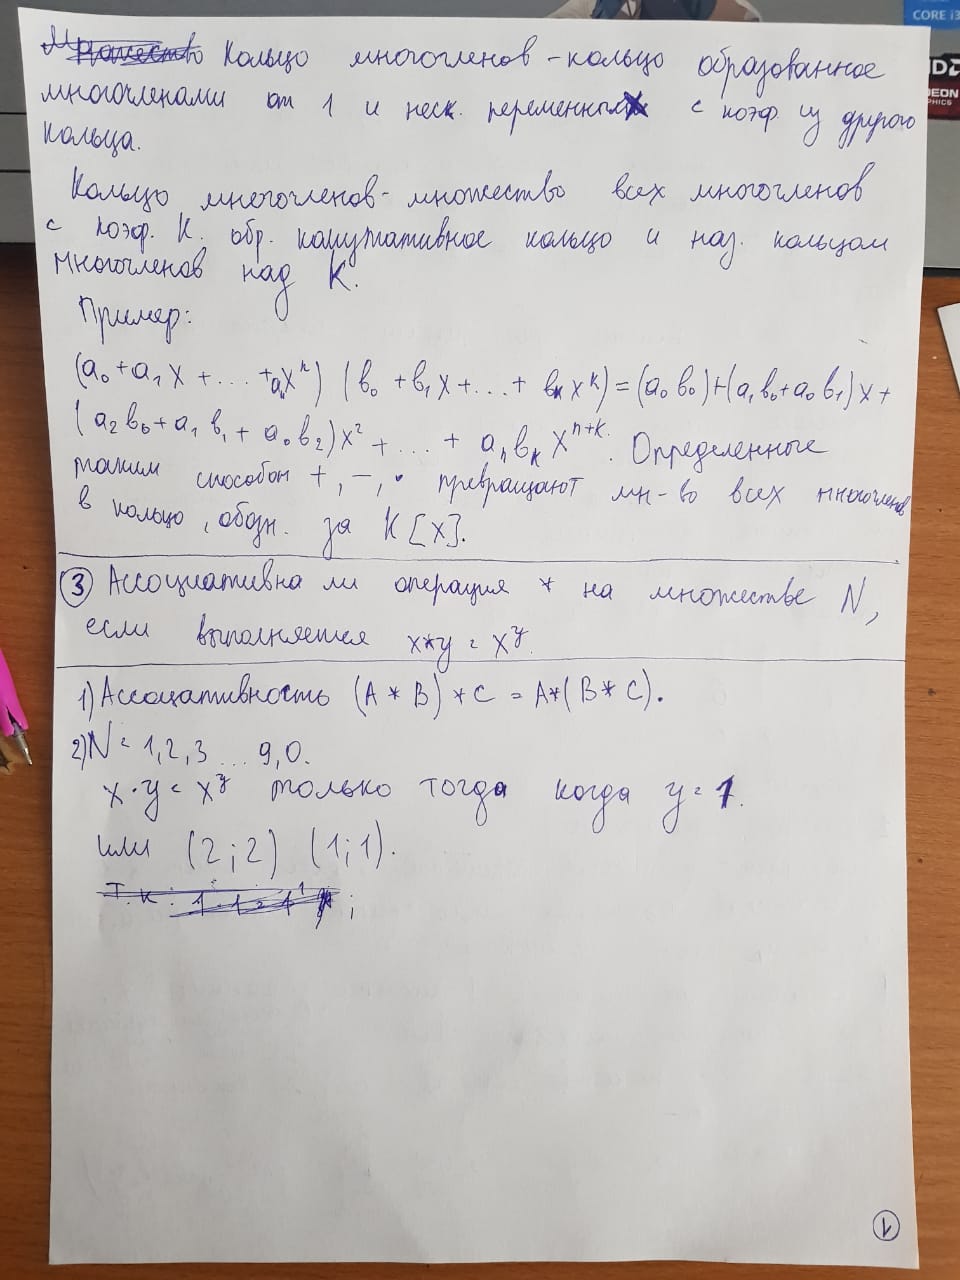 CORE i3
Кольцо многочленов - кольцо образованное
многочленами от 1 и неск. переменных с коэф из другого
кольца.
Кольцо многочленов - множество всех многочленов
с коэф. K. обр. комутативное кольцо и наз. кольцом
многочленов над K.
Пример:
(a₀+a₁x+...+aₙxᵏ) (b₀+b₁x+...+bₖxᵏ)=(a₀b₀)+(a₁b₀+a₀b₁)x+
(a₂b₀+a₁b₁+a₀b₂)x²+...+aₙbₖxⁿ⁺ᵏ. Определенные
таким способом +, -, · превращают мн-во всех многочленов
в кольцо, обозн. за K[x].
③ Ассоциативна ли операция * на множестве N,
если выполняется x*y = xʸ.
1) Ассоцативность (A * B) * C = A*(B * C).
2) N = 1,2,3 ... 9,0.
x·y = xʸ только тогда когда y = 1.
или (2;2) (1;1).
т.к. 1·1=1¹ ;